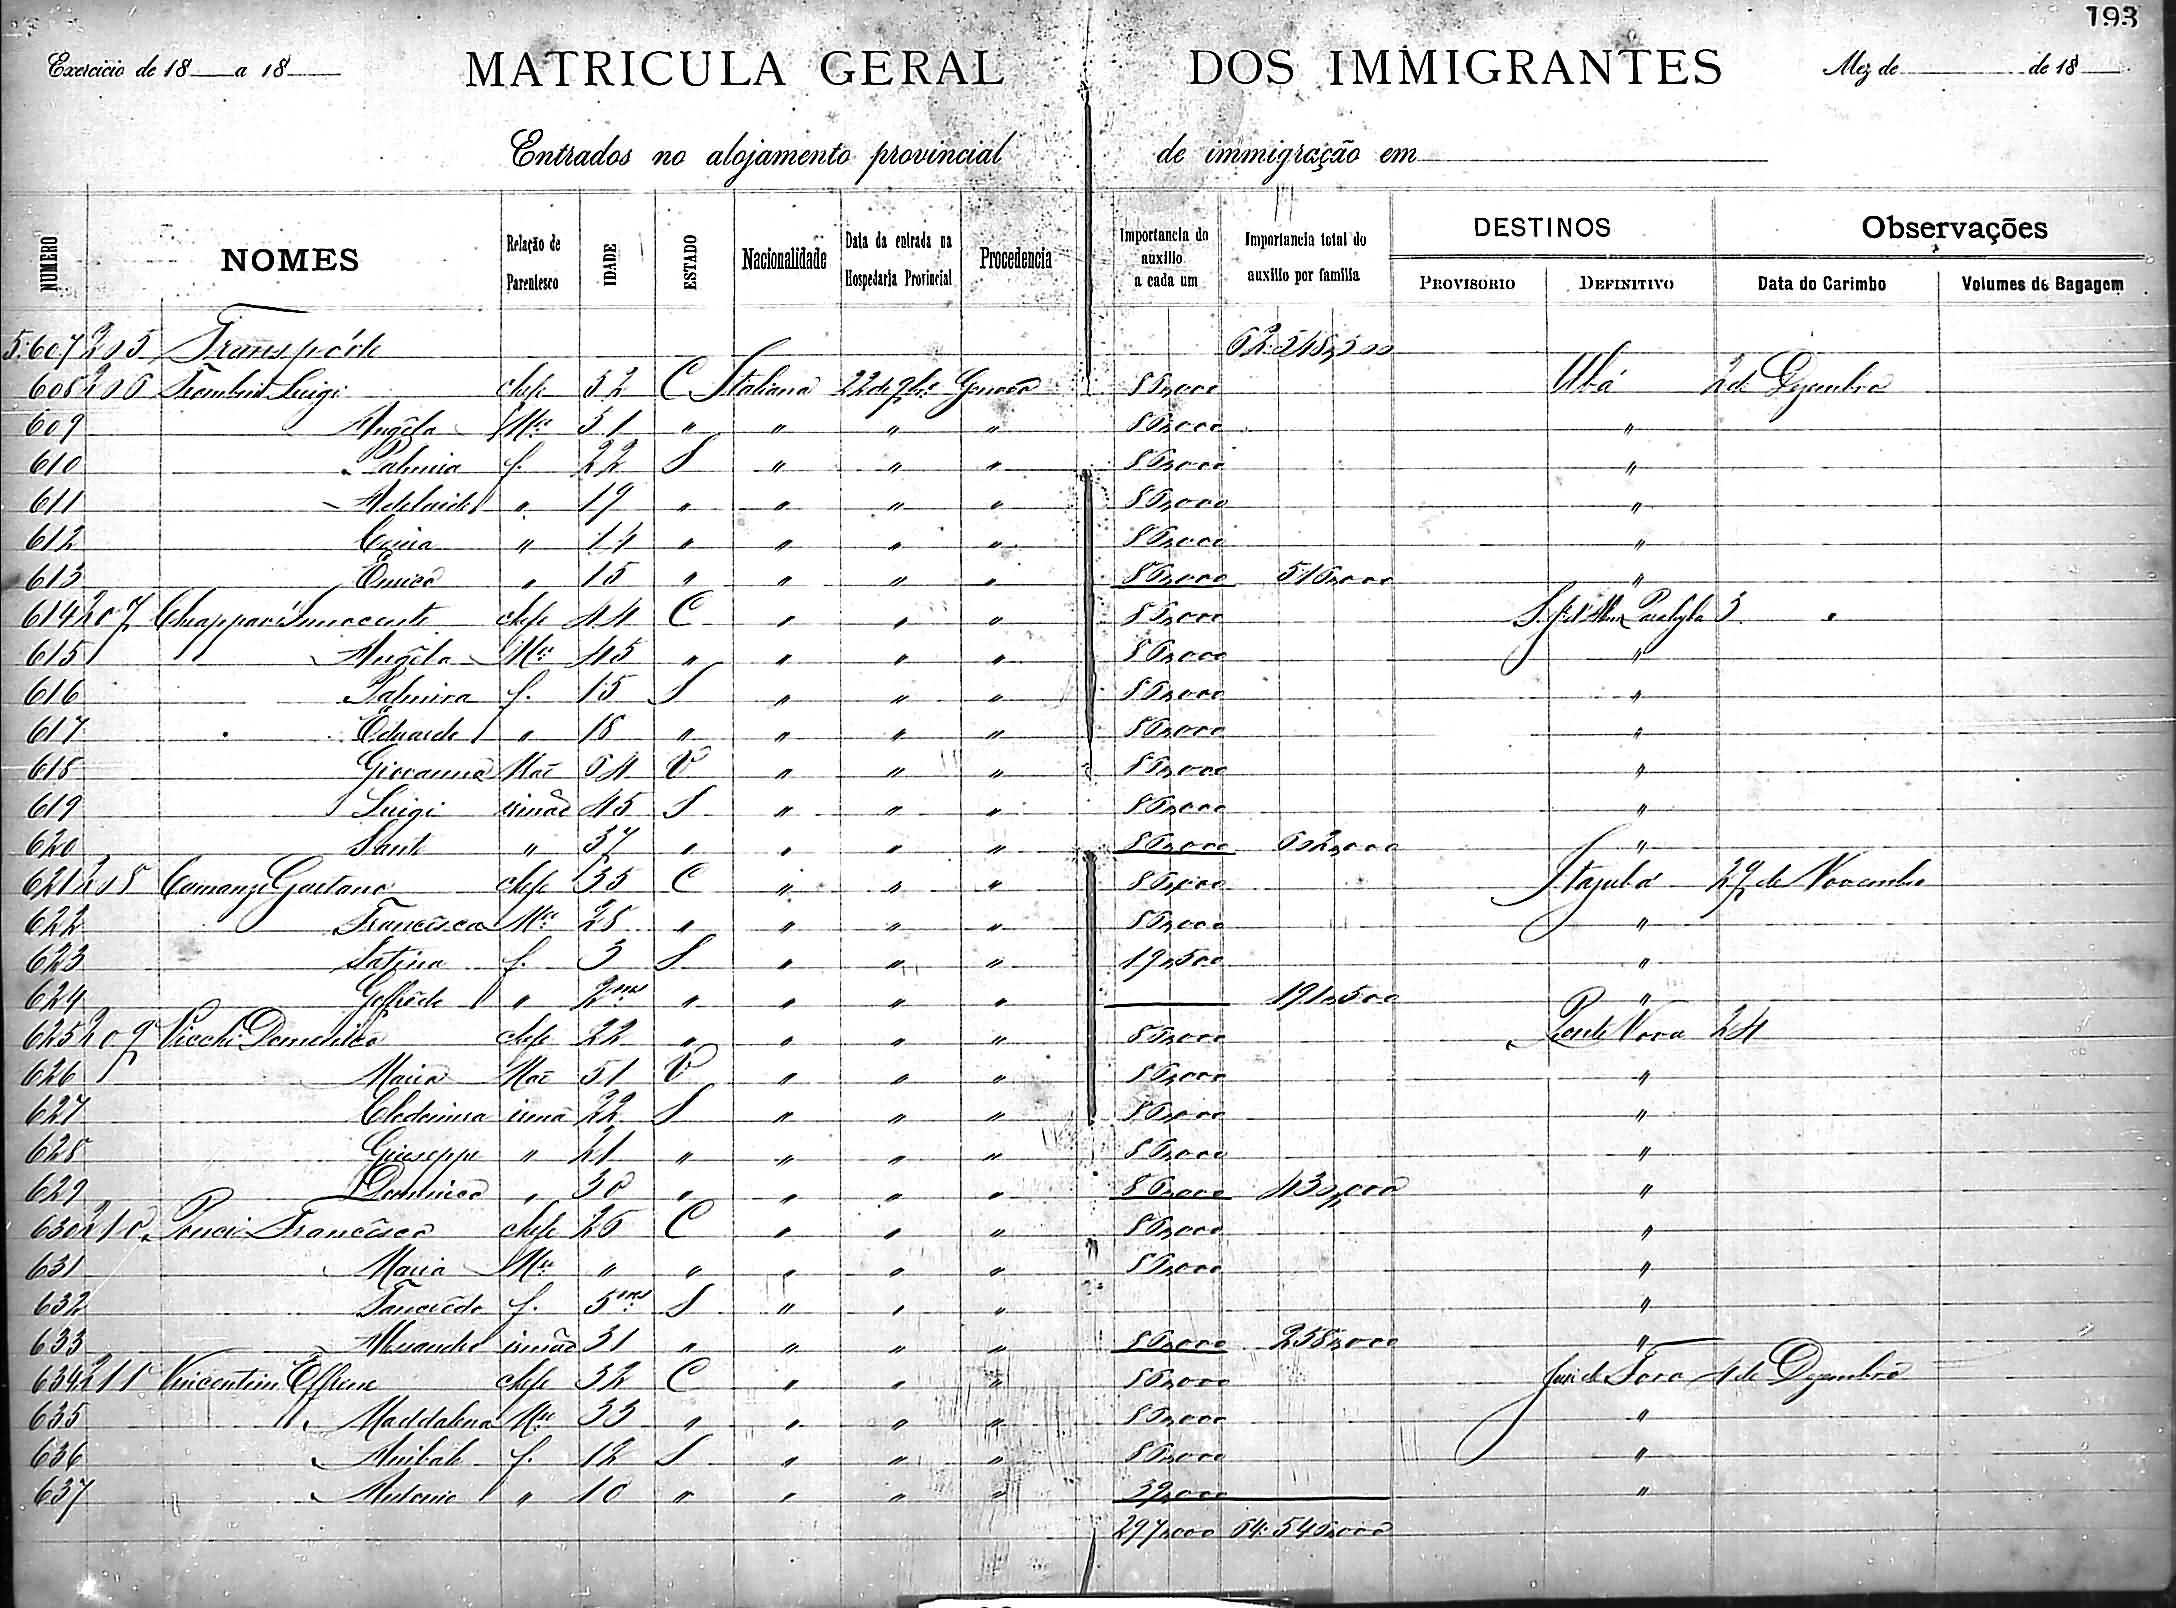 193
Exercicio de 18 a 18 MATRICULA GERAL DOS IMMIGRANTES Mez de de 18
Entrados no alojamento provincial de immigração em
NUMERO NOMES Relação de Parentesco IDADE ESTADO Nacionalidade Data da entrada na Hospedaria Provincial Procedencia Importancia do auxilio a cada um Importancia total do auxilio por familia DESTINOS Observações
PROVISORIO DEFINITIVO Data do Carimbo Volumes de Bagagem
5.607 205 Transpórte 62:548,500
608 206 Luigi chefe 52 C Italiana 22 de 9bro Genova 86,000 Ubá 2 de Dezembro
609 Angela Mer 51 " " " " 86,000 "
610 Palmira f. 22 S " " " 86,000 "
611 Adelaide " 19 " " " " 86,000 "
612 " 14 " " " " 86,000 "
613 " 15 " " " " 86,000 516,000 "
614 207 Innocente chefe 44 C " " " 86,000 3 "
615 Angela Mer 45 " " " " 86,000 "
616 Palmira f. 15 S " " " 86,000 "
617 Eduardo " 18 " " " " 86,000 "
618 Giovanna Mãe 64 V " " " 86,000 "
619 Luigi irmão 45 S " " " 86,000 "
620 Sante " 37 " " " " 86,000 602,000 "
621 208 Gaetano chefe 35 C " " " 86,000 Itajubá 27 de Novembro
622 Francesca Mer 28 " " " " 86,000 "
623 f. 3 S " " " 19,500 "
624 Goffredo " 2ms " " " " 191,500 "
625 209 Vicchi Domenico chefe 22 " " " " 86,000 Ponte Nova 24
626 Maria Mãe 51 V " " " 86,000 "
627 Clodomira irmã 22 S " " " 86,000 "
628 Giuseppe " 21 " " " " 86,000 "
629 Domenico " 30 " " " " 86,000 430,000 "
630 210 Francesco chefe 26 C " " " 86,000 "
631 Maria Mer " " " " " 86,000 "
632 Tancredo f. 5ms S " " " "
633 irmão 31 " " " " 86,000 258,000 "
634 211 Vincentini chefe 32 C " " " 86,000 Juiz de Fora 4 de Dezembro
635 Maddalena Mer 33 " " " " 86,000 "
636 Anibale f. 12 S " " " 86,000 "
637 Antonio " 10 " " " " 39,000 "
297,000 64:546,000